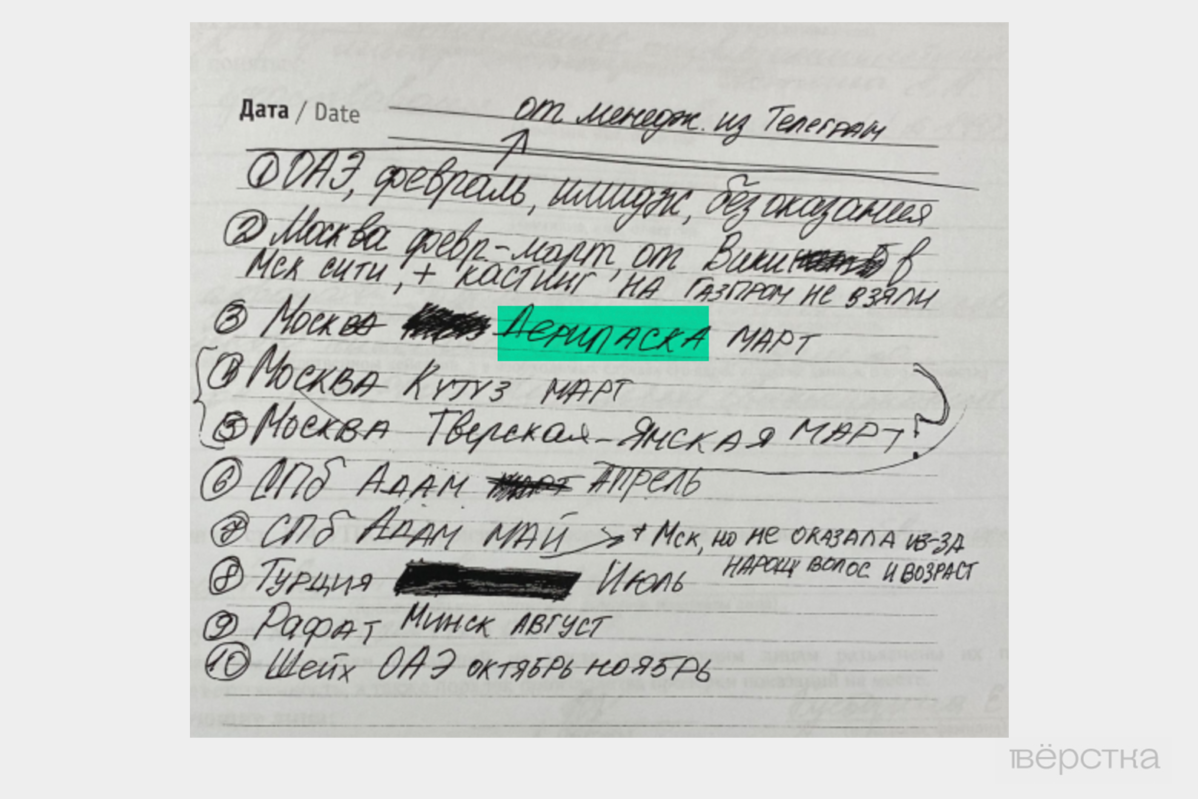 Дата / Date
от менедж. из Телеграм
① ОАЭ, февраль, имидж, без оказания
② Москва февр-март от Вики в
Мск сити, + кастинг на Газпром не взяли
③ Москва Дерипаска март
④ Москва Кутуз март
⑤ Москва Тверская-Ямская март ?
⑥ СПб Адам март апрель
⑦ СПб Адам май → + Мск, но не оказала из-за
нарощ волос и возраст
⑧ Турция Июль
⑨ Рафат Минск август
⑩ Шейх ОАЭ октябрь ноябрь
вёрстка